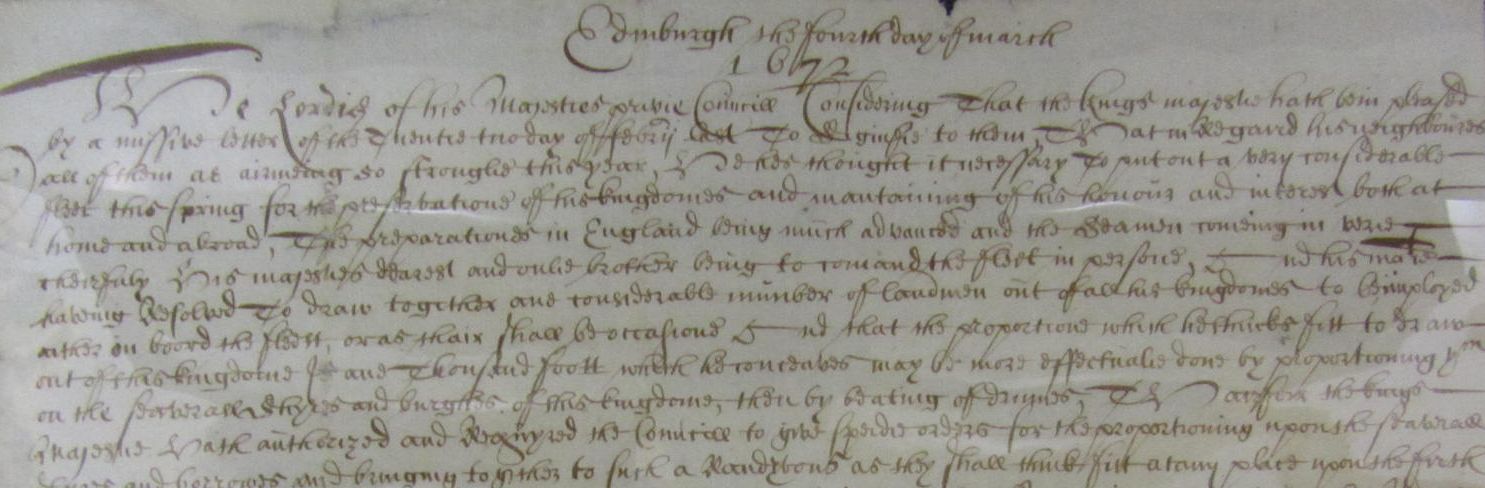 Edinburgh the fourth day of march
1672
The Lordis of his Majesties privie Councill Considering That the kings majestie hath bein pleased
by a missive letter of the Tuentie tuo day of febrij last To signifie to them That in Regaird his neighboures
all of them ar airmeing so stronglie this year, He hes thought it necessary To put out a very considerable
fleet this spring for the preservatione of his kingdomes and mantaining of his honour and interest both at
home and abroad, The preparationes in England being much advanced and the Seamen comeing in verie
cheirfuly His majesties dearest and onlie brother being to comand the fleet in persone, And his matie
haveing Resolved To draw together ane considerable number of landmen out of all his kingdomes to be imployed
aither on boord the fleett, or as thair shall be occasione And that the proportione which he thinks fitt to draw
out of this kingdome Is ane Thousand foott which he conceaves may be more effectualie done by proportioning ym
on the severall shyres and burghes of this kingdome, then by beating of drumes, Thairfore the kings
Majestie Hath authorized and Requyred the Councill to give speidie orders for the proportioning upon the severall
shyres and borrowes and bringing together to such a Randivous as they shall think fitt at any place upon the firth